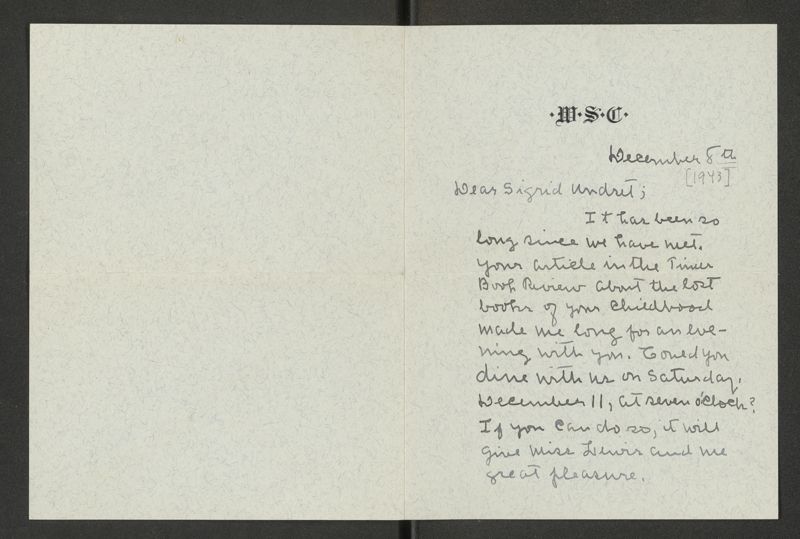 ·W·S·C·
December 8th
[1943]
Dear Sigrid Undset;
It has been so
long since we have met.
Your article in the Times
Book Review about the lost
books of your childhood
made me long for an eve-
ning with you. Could you
dine with us on Saturday,
December 11, at seven o'clock?
If you can do so, it will
give Miss Lewis and me
great pleasure.